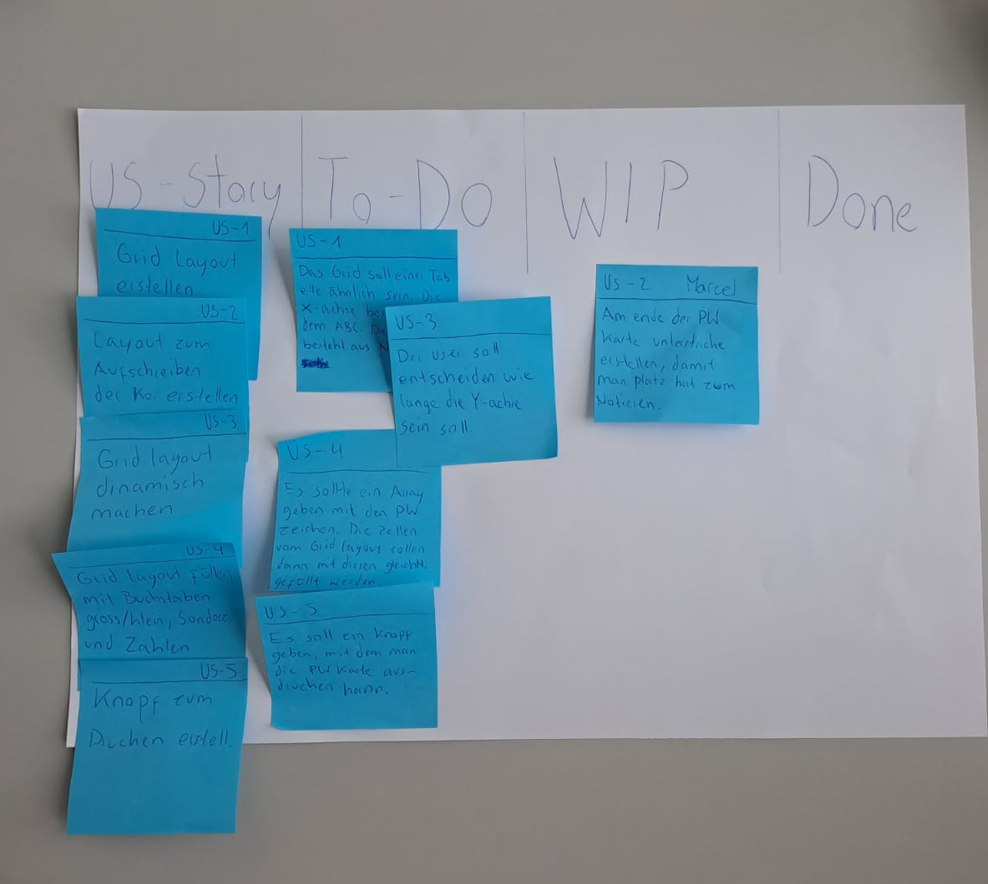 US-Story
To-Do
WIP
Done
US-1
Grid Layout
erstellen
US-2
Layout zum
Aufschreiben
der Ko. erstellen
US-3
Grid layout
dinamisch
machen
US-4
Grid layout füllen
mit Buchstaben
gross/klein, Sonderz
und Zahlen
US-5
Knopf zum
Drucken erstell.
US-1
Das Grid soll einer Tab
elle ähnlich sein. Die
X-achse be
dem ABC. Di
besteht aus N
US-3
Der user soll
entscheiden wie
lange die Y-achse
sein soll.
US-4
Es sollte ein Array
geben mit den PW
zeichen. Die Zellen
vom Grid layout sollen
dann mit diesen
gefüllt werden
US-5
Es soll ein Knopf
geben, mit dem man
die PW Karte aus-
drucken kann.
US-2 Marcel
Am ende der PW
Karte unterstriche
erstellen, damit
man platz hat zum
Noticien.